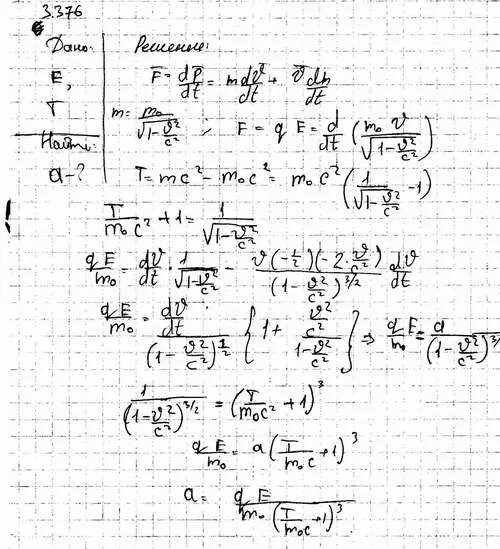 3.376
Дано: Решение:
E,
T
Найти:
a-?
F̅ = dP̅/dt = m dv̅/dt + v̅ dm/dt
m = m₀/√(1-v²/c²) ; F = q E = d/dt (m₀ v/√(1-v²/c²))
T = mc² - m₀c² = m₀c² (1/√(1-v²/c²) -1)
! T/m₀c² + 1 = 1/√(1-v²/c²)
qE/m₀ = dv/dt · 1/√(1-v²/c²) - v(-½)(-2·v/c²)/(1-v²/c²)^3/2 dv/dt
qE/m₀ = dv/dt/(1-v²/c²)^1/2 {1 + v²/c²/1-v²/c²} ⇒ qE/m₀ = a/(1-v²/c²)^3/
1/(1-v²/c²)^3/2 = (T/m₀c² + 1)³
qE/m₀ = a (T/m₀c +1)³
a = qE/m₀(T/m₀c +1)³